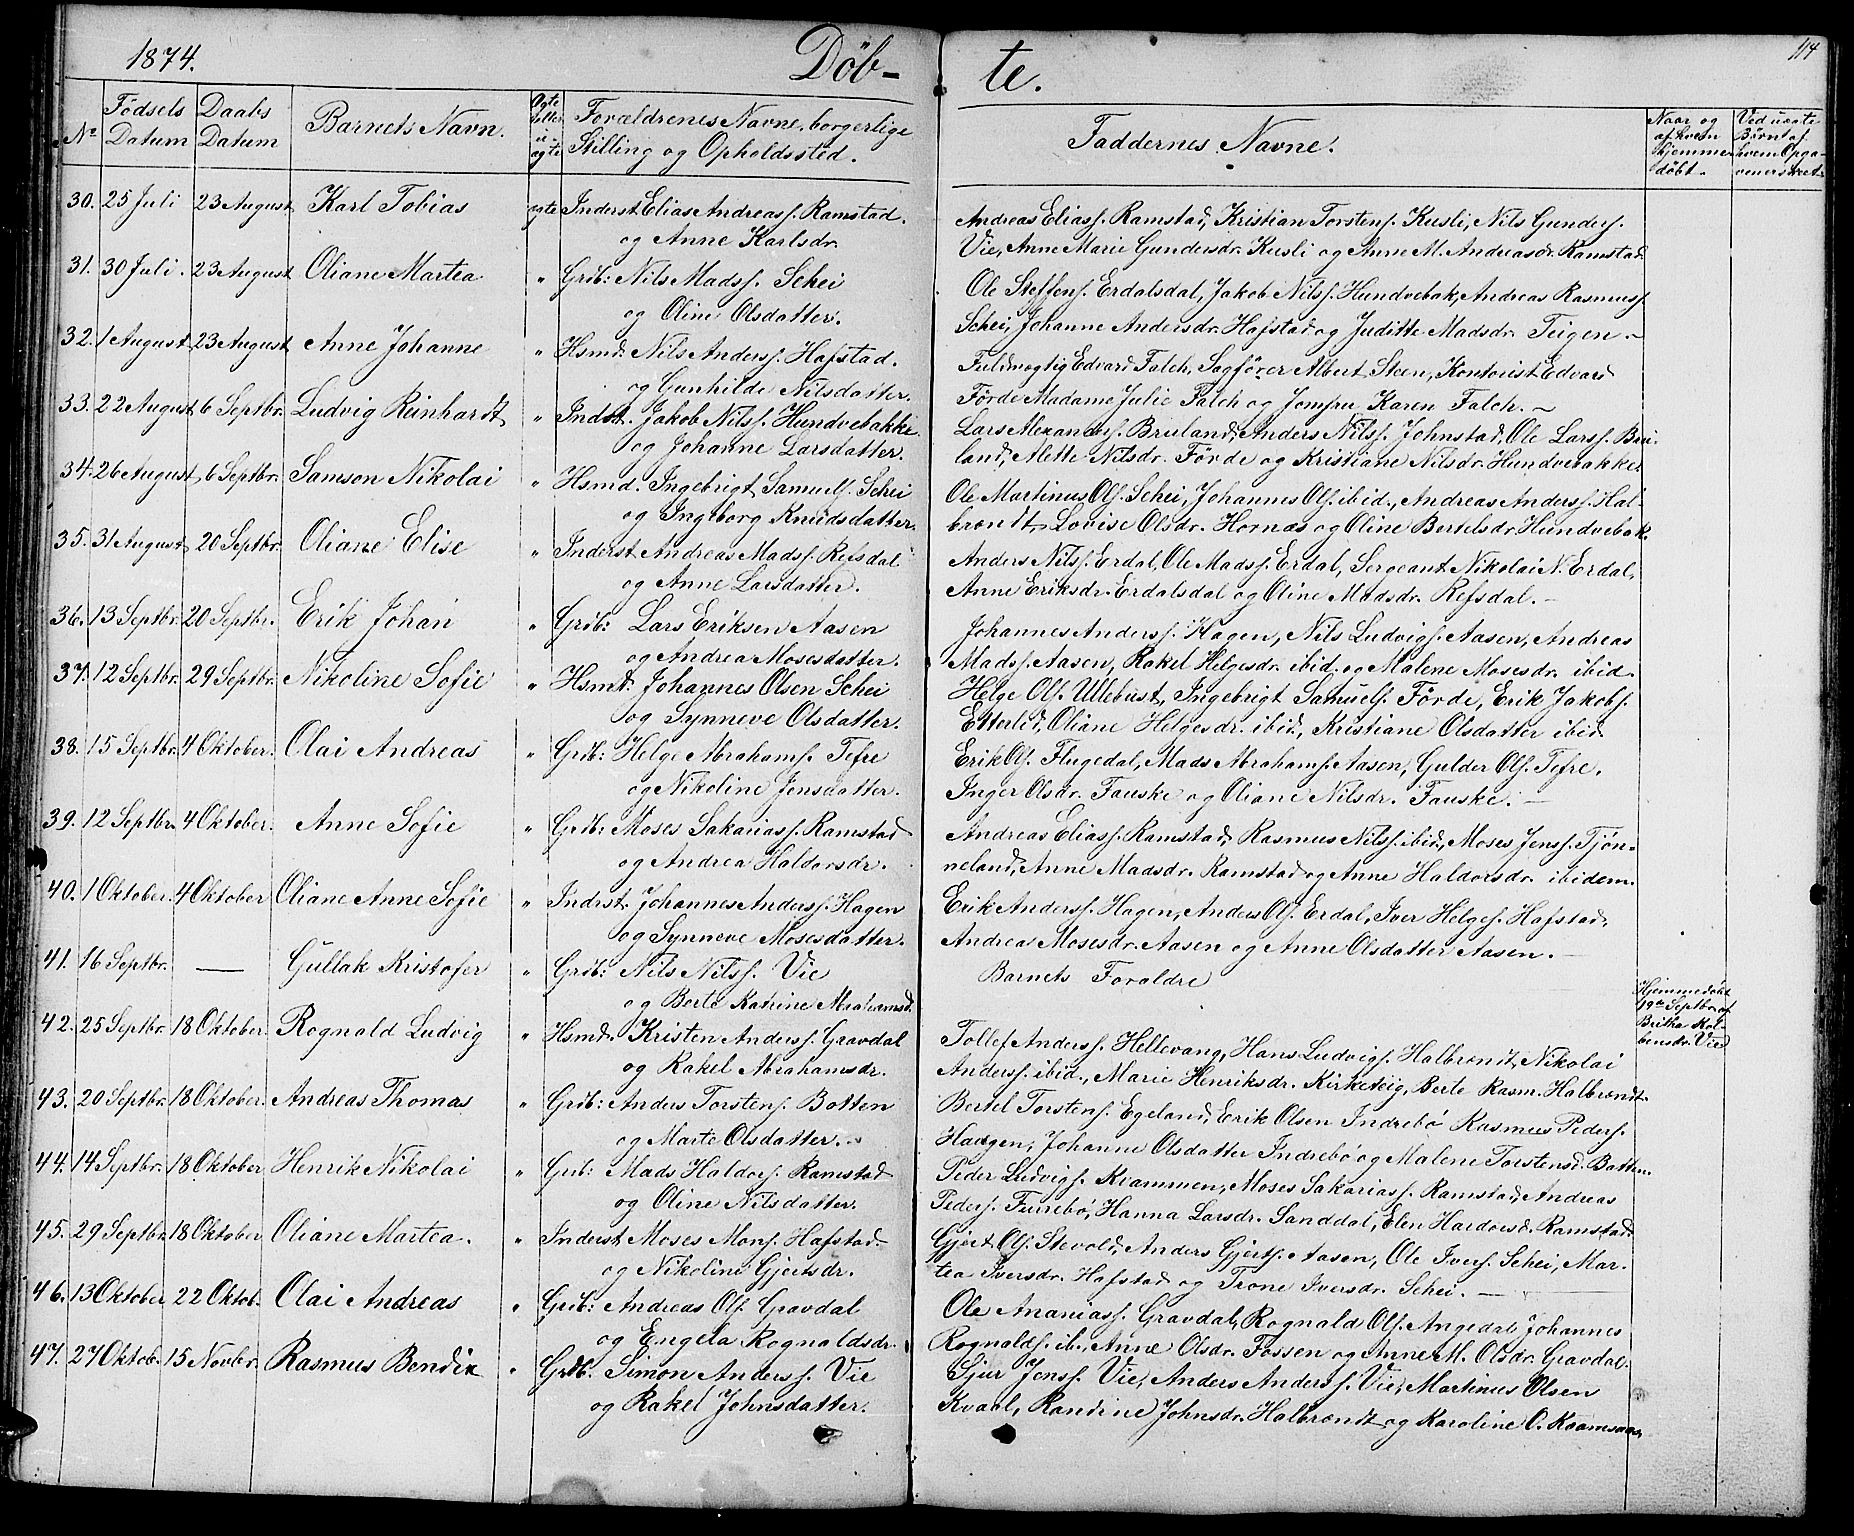 1874.
Döb-
te.
114
No
Fødsels Datum
Daabs Datum
Barnets Navn.
Ægte eller uægte
Forældrenes Navne, borgerlige
Stilling og Opholdssted.
Faddernes Navne.
Naar og af hvem hjemmedøbt.
Ved uægte Børn: af
30. 25 Juli 23 August Karl Tobias ægte Inderst Elias Andreass. Ramstad.
og Anne Karlsdr.
Andreas Eliass. Ramstad, Kristian Torstens. Kusli, Nils Gunders.
Vie, Anne Marie Gundersdr. Kusli og Anne M. Andreasdr. Ramstad.
31. 30 Juli. 23 August Oliane Martea " Grdb: Nils Madss. Schei
og Oline Olsdatter.
Ole Steffens. Erdalsdal, Jakob Nilss. Hundvebak, Andreas Rasmuss.
Schei, Johanne Andersdr. Hafstad og Juditte Madsdr. Teigen.
32. 1 August 23 August Anne Johanne " Hsmd. Nils Anderss. Hafstad.
og Gunhilde Nilsdatter.
Fuldmægtig Edvard Falch, Sagfører Albert Steen, Kontorist Edvard
Förde Madame Julie Falch og Jomfru Karen Falch.
33. 22 August 6 Septbr. Ludvig Reinhardt " Indst. Jakob Nilss. Hundvebakke
og Johanne Larsdatter.
Lars Alexanders. Bruland, Anders Nilss. Johnstad, Ole Larss. Bru-
land, Alette Nilsdr. Förde og Kristiane Nilsdr. Hundvebakke.
34. 26 August 6 Septbr. Samson Nikolai " Hsmd. Ingebrigt Samuels. Schei
og Ingeborg Knudsdatter.
Ole Martinus Ols. Schei, Johannes Ols. ibid., Andreas Anderss. Hal-
brendt, Lovise Olsdr. Hornæs og Oline Bertelsdr. Hundvebak.
35. 31 August 20 Septbr. Oliane Elise " Inderst Andreas Madss. Refsdal
og Anne Larsdatter.
Anders Nilss. Erdal, Ole Madss. Erdal, Sergeant Nikolai N. Erdal,
Anne Eriksdr. Erdalsdal og Oline Madsdr. Refsdal.
36. 13 Septbr. 20 Septbr. Erik Johan " Grdb: Lars Eriksen Aasen
og Andrea Mosesdatter.
Johannes Anderss. Hagen, Nils Ludvigs. Aasen, Andreas
Madss. Aasen, Rakel Helgesdr. ibid. og Malene Mosesdr. ibid.
37. 12 Septbr. 29 Septbr. Nikoline Sofie " Hsmd. Johannes Olsen Schei
og Synneve Olsdatter.
Helge Ols. Ullebust, Ingebrigt Samuels. Förde, Erik Jakobs.
Etterlid, Oliane Helgesdr. ibid., Kristiane Olsdatter ibid.
38. 15 Septbr. 4 Oktober. Olai Andreas " Grdb: Helge Abrahams. Tefre
og Nikoline Jensdatter.
Erik Ols. Flugedal, Mads Abrahams. Aasen, Gulder Ols. Tefre.
Inger Olsdr. Fauske og Oliane Nilsdr. Fauske.
39. 12 Septbr. 4 Oktober. Anne Sofie " Grdb: Moses Sakariass. Ramstad
og Andrea Haldorsdr.
Andreas Eliass. Ramstad, Rasmus Nilss. ibid., Moses Jenss. Tjön-
neland, Anne Madsdr. Ramstad og Anne Haldorsdr. ibidem.
40. 1 Oktober. 4 Oktober Oliane Anne Sofie " Inderst. Johannes Anderss. Hagen
og Synneve Mosesdatter.
Erik Anderss. Hagen, Anders Ols. Erdal, Iver Helges. Hafstad,
Andrea Mosesdr. Aasen og Anne Olsdatter Aasen.
41. 16 Septbr. — Gullak Kristofer " Grdb: Nils Nilss. Vie
og Berte Katrine Abrahamsd.
Barnets Forældre
Hjemmedöbt
19de Septbr. af
Britha Kol-
bensdr. Vie
42. 25 Septbr. 18 Oktober. Rognald Ludvig " Hsmd. Kristen Anderss. Gravdal
og Rakel Abrahamsdr.
Tollef Anderss. Hellevang, Hans Ludvigs. Halbrendt, Nikolai
Anderss. ibid., Marie Henriksdr. Kirketeig, Berte Rasm. Halbrendt.
43. 20 Septbr. 18 Oktober. Andreas Thomas " Grdb: Anders Torstens. Botten
og Marte Olsdatter.
Bertel Torstens. Egeland, Erik Olsen Indrebö Rasmus Peders.
Haugen, Johanne Olsdatter Indrebö og Malene Torstensd. Botten.
44. 14 Septbr. 18 Oktober Henrik Nikolai " Grdb: Mads Haldors. Ramstad
og Oline Nilsdatter.
Peder Ludvigs. Kvammen, Moses Sakariass. Ramstad, Andreas
Peders. Furebö, Hanna Larsdr. Sanddal, Elen Hardorsd. Ramstad
45. 29 Septbr. 18 Oktober Oliane Martea. " Inderst Moses Mons. Hafstad.
og Nikoline Gjertsdr.
Gjert Ols. Stevold, Anders Gjerts. Aasen, Ole Ivers. Schei, Mar-
tea Iversdr. Hafstad og Trone Iversdr. Schei.
46. 13 Oktober 22 Oktob. Olai Andreas " Grdb: Andreas Ols. Gravdal
og Engela Rognaldsdr.
Ole Ananiass. Gravdal, Rognald Ols. Angedal Johannes
Rognalds. ib., Anne Olsdr. Fossen og Anne M. Olsdr. Gravdal.
47. 27 Oktob. 15 Novbr. Rasmus Bendix " Grdb. Simon Anderss. Vie
og Rakel Johnsdatter.
Sjur Jonss. Vie, Anders Anderss. Vie, Martinus Olsen
Kvaal, Randine Johnsdr. Halbrendt og Karoline O.